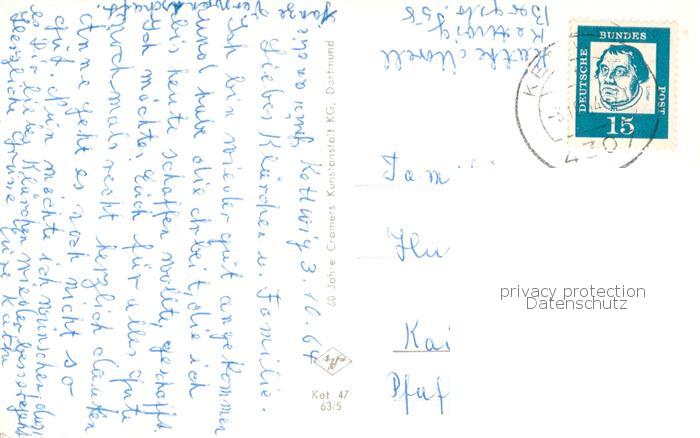 Kettwig 3.10.64
Liebes Klärchen u. Familie.
Ich bin wieder gut angekommen
und habe die Arbeit, die ich
bis heute schaffen wollte, geschafft.
Ich möchte Euch für alles Gute
nochmals recht herzlich danken
Anne geht es noch nicht so
gut. Nun möchte ich wünschen daß
es Dir liebe Klärchen wieder besser geht
Herzliche Grüsse Eure Käthe
Käthe
Kettwig
60 Jahre Cramers Kunstanstalt KG, Dortmund
Ket 47
63/5
DEUTSCHE BUNDESPOST
15
Fam
Kai
Pfaf
privacy protection
Datenschutz